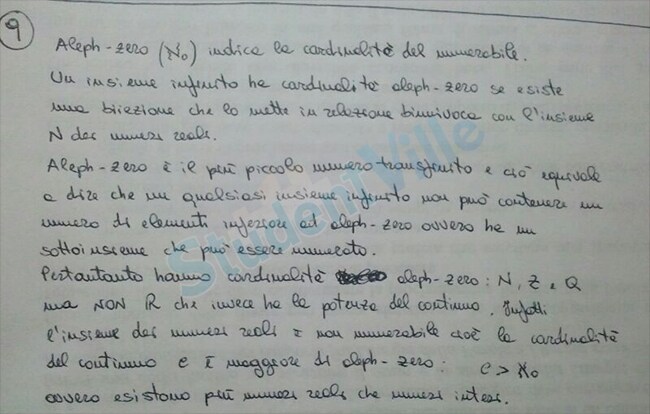 9
Aleph-zero (ℵ₀) indica la cardinalità del numerabile.
Un insieme infinito ha cardinalità aleph-zero se esiste
una biiezione che lo mette in relazione biunivoca con l'insieme
N dei numeri reali.
Aleph-zero è il più piccolo numero transfinito e ciò equivale
a dire che un qualsiasi insieme infinito non può contenere un
numero di elementi inferiore ad aleph-zero ovvero ha un
sottoinsieme che può essere numerato.
Pertantanto hanno cardinalità aleph-zero: N, Z e Q
ma NON R che invece ha la potenza del continuo. Infatti
l'insieme dei numeri reali è non numerabile cioè la cardinalità
del continuo c è maggiore di aleph-zero: c > ℵ₀
ovvero esistono più numeri reali che numeri interi.
StudentVille